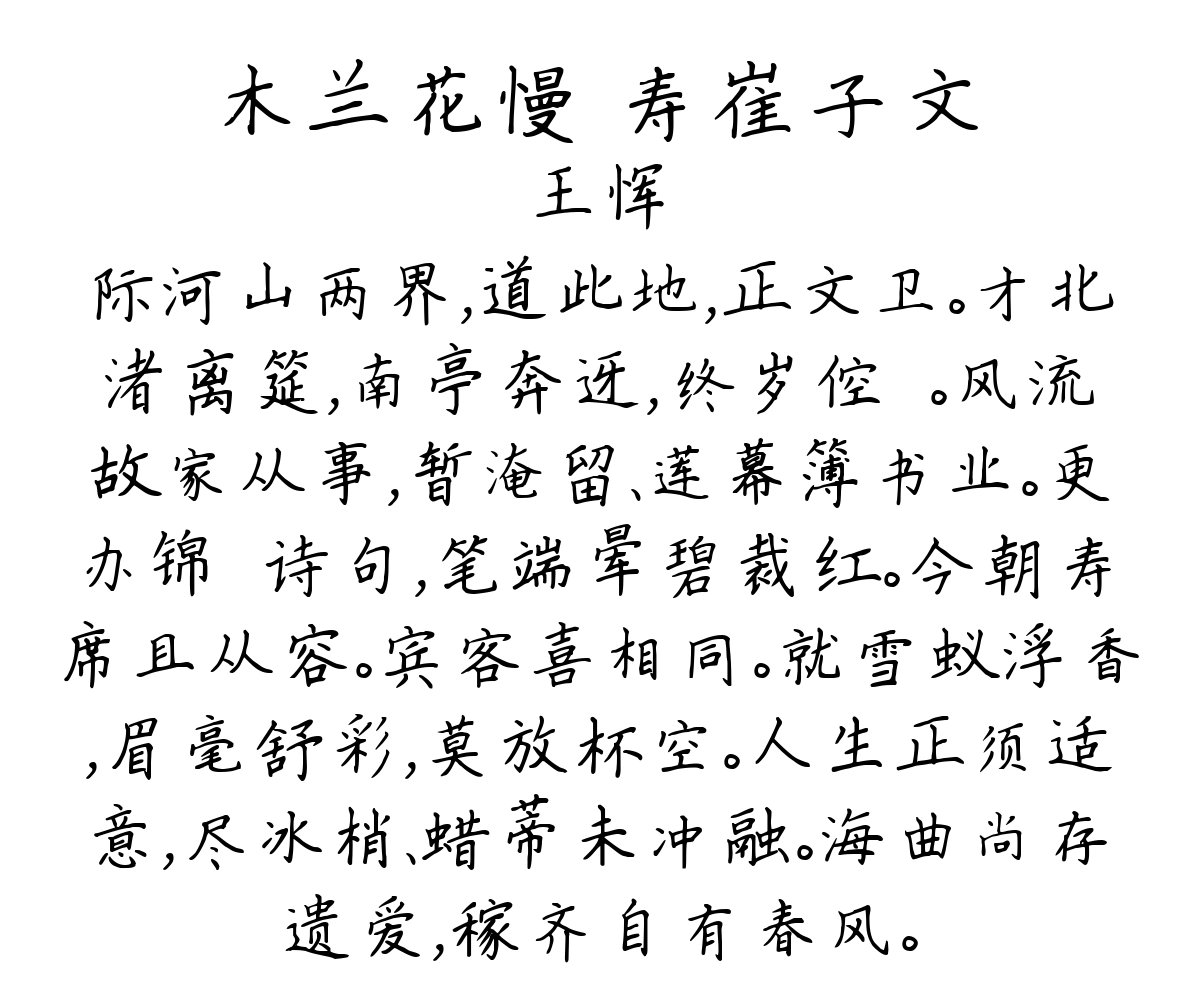 木兰花慢 寿崔子文
王恽
际河山两界,道此地,正文卫。才北
渚离筵,南亭奔迓,终岁倥 。风流
故家从事,暂淹留、莲幕簿书业。更
办锦 诗句,笔端晕碧裁红。今朝寿
席且从容。宾客喜相同。就雪蚁浮香
,眉毫舒彩,莫放杯空。人生正须适
意,尽冰梢、蜡蒂未冲融。海曲尚存
遗爱,稼齐自有春风。